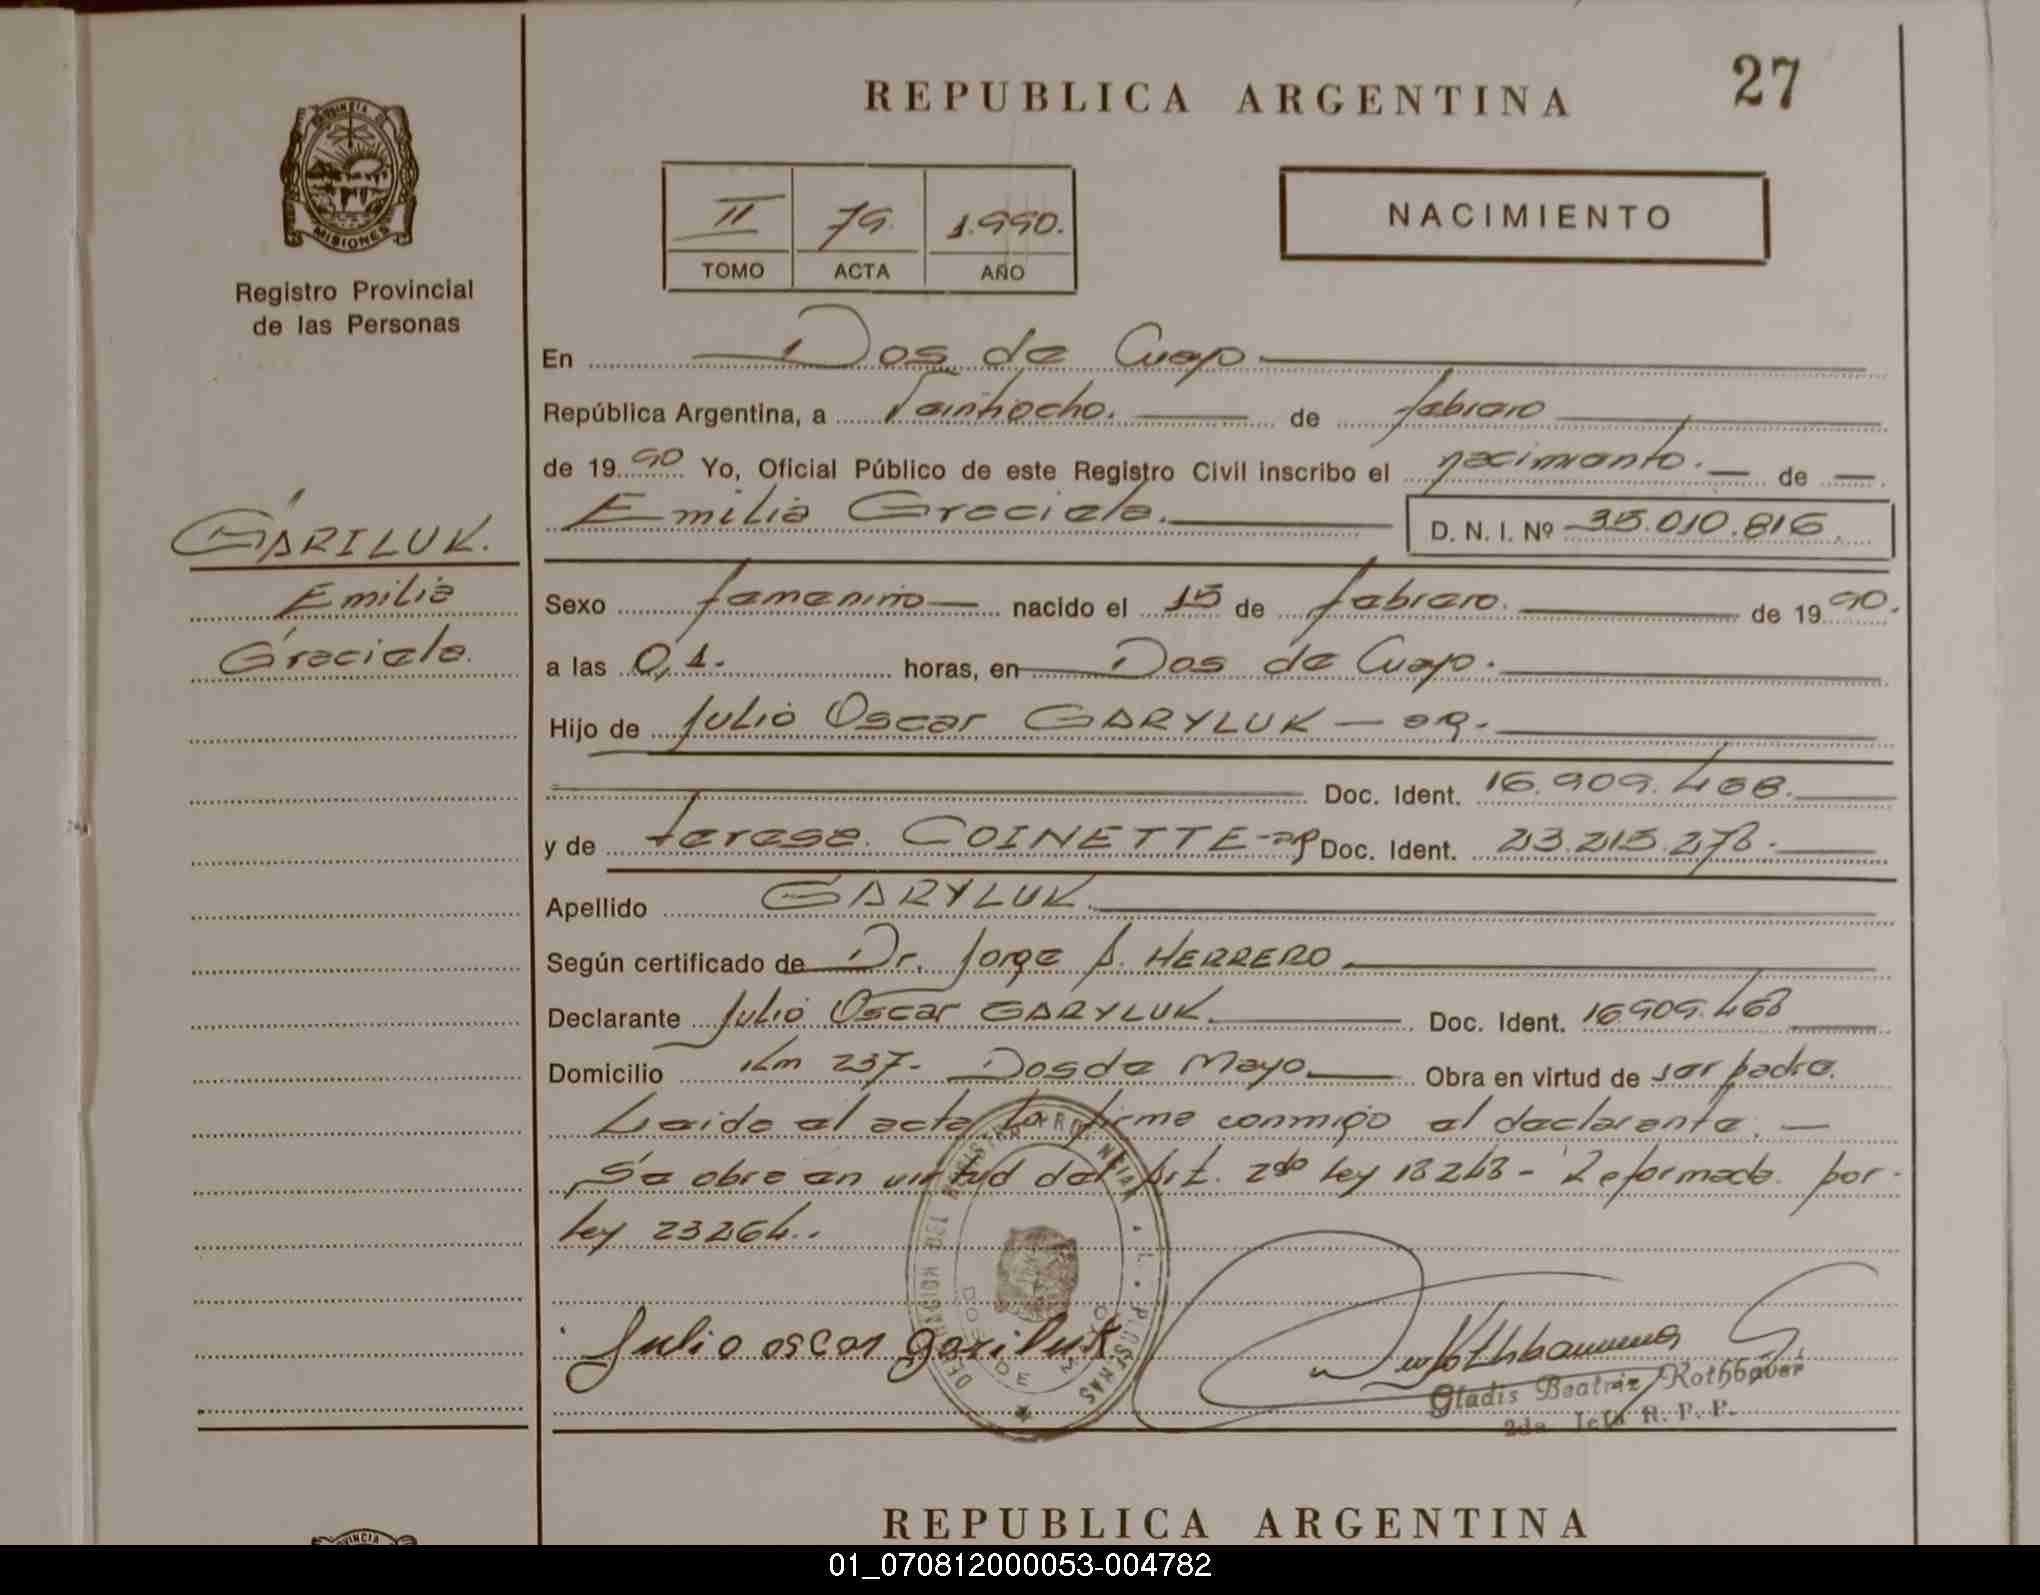 REPUBLICA ARGENTINA
27
PROVINCIA DE
MISIONES
Registro Provincial
de las Personas
II 79. 1.990.
TOMO ACTA AÑO
NACIMIENTO
En Dos de
República Argentina, a Veintiocho. de febrero
de 1990 Yo, Oficial Público de este Registro Civil inscribo el nacimiento. — de —
Emilia Graciela. D. N. I. Nº 35.010.816.
GARILUK.
Emilia
Graciela.
Sexo femenino — nacido el 15 de febrero. de 1990.
a las 0,1. horas, en Dos de
Hijo de Julio Oscar GARYLUK — arg.
Doc. Ident. 16.909.468.
y de Teresa. COINETTE - arg Doc. Ident. 23.215.278.
Apellido GARYLUK.
Según certificado de Dr. Jorge A. HERRERO.
Declarante Julio Oscar GARYLUK. Doc. Ident. 16.909.468
Domicilio Km 237. Dos de Mayo. Obra en virtud de ser padre.
Leida el acta la firma conmigo el declarante. —
Se obra en virtud del Art. 2do ley 18248 - Reformada por
ley 23264.
Julio oscar gariluk
Gladis Beatriz Rothbauer
2da. Jefa R. P. P.
REPUBLICA ARGENTINA
PROVINCIA
01_070812000053-004782